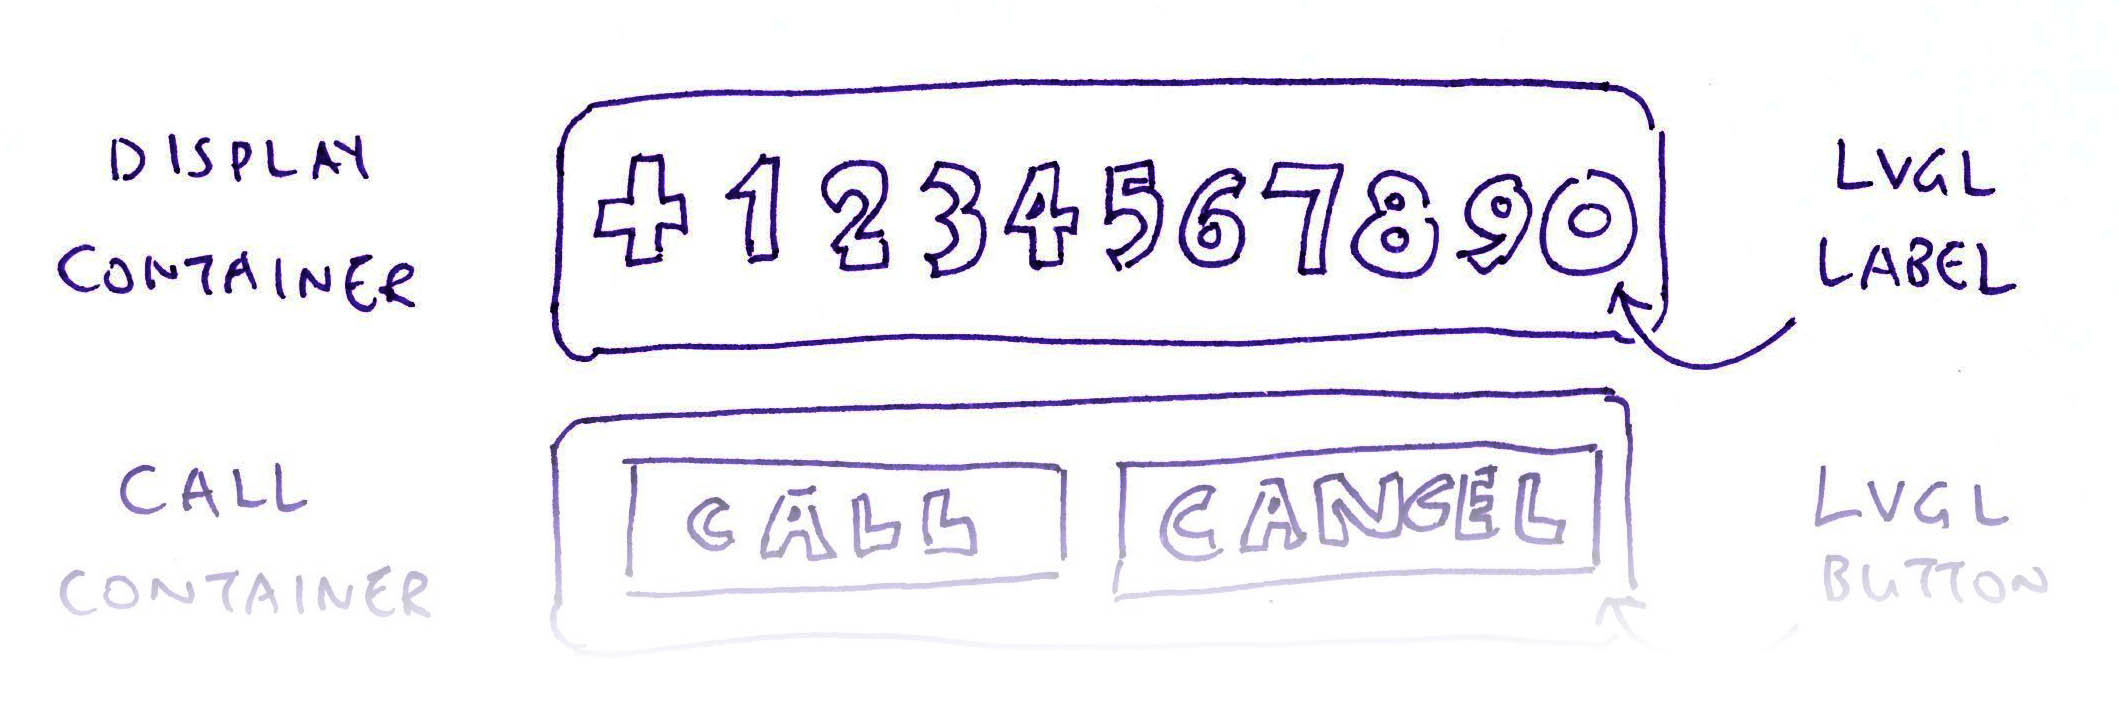 DISPLAY
CONTAINER
+1234567890
LVGL
LABEL
CALL
CONTAINER
CALL
CANCEL
LVGL
BUTTON